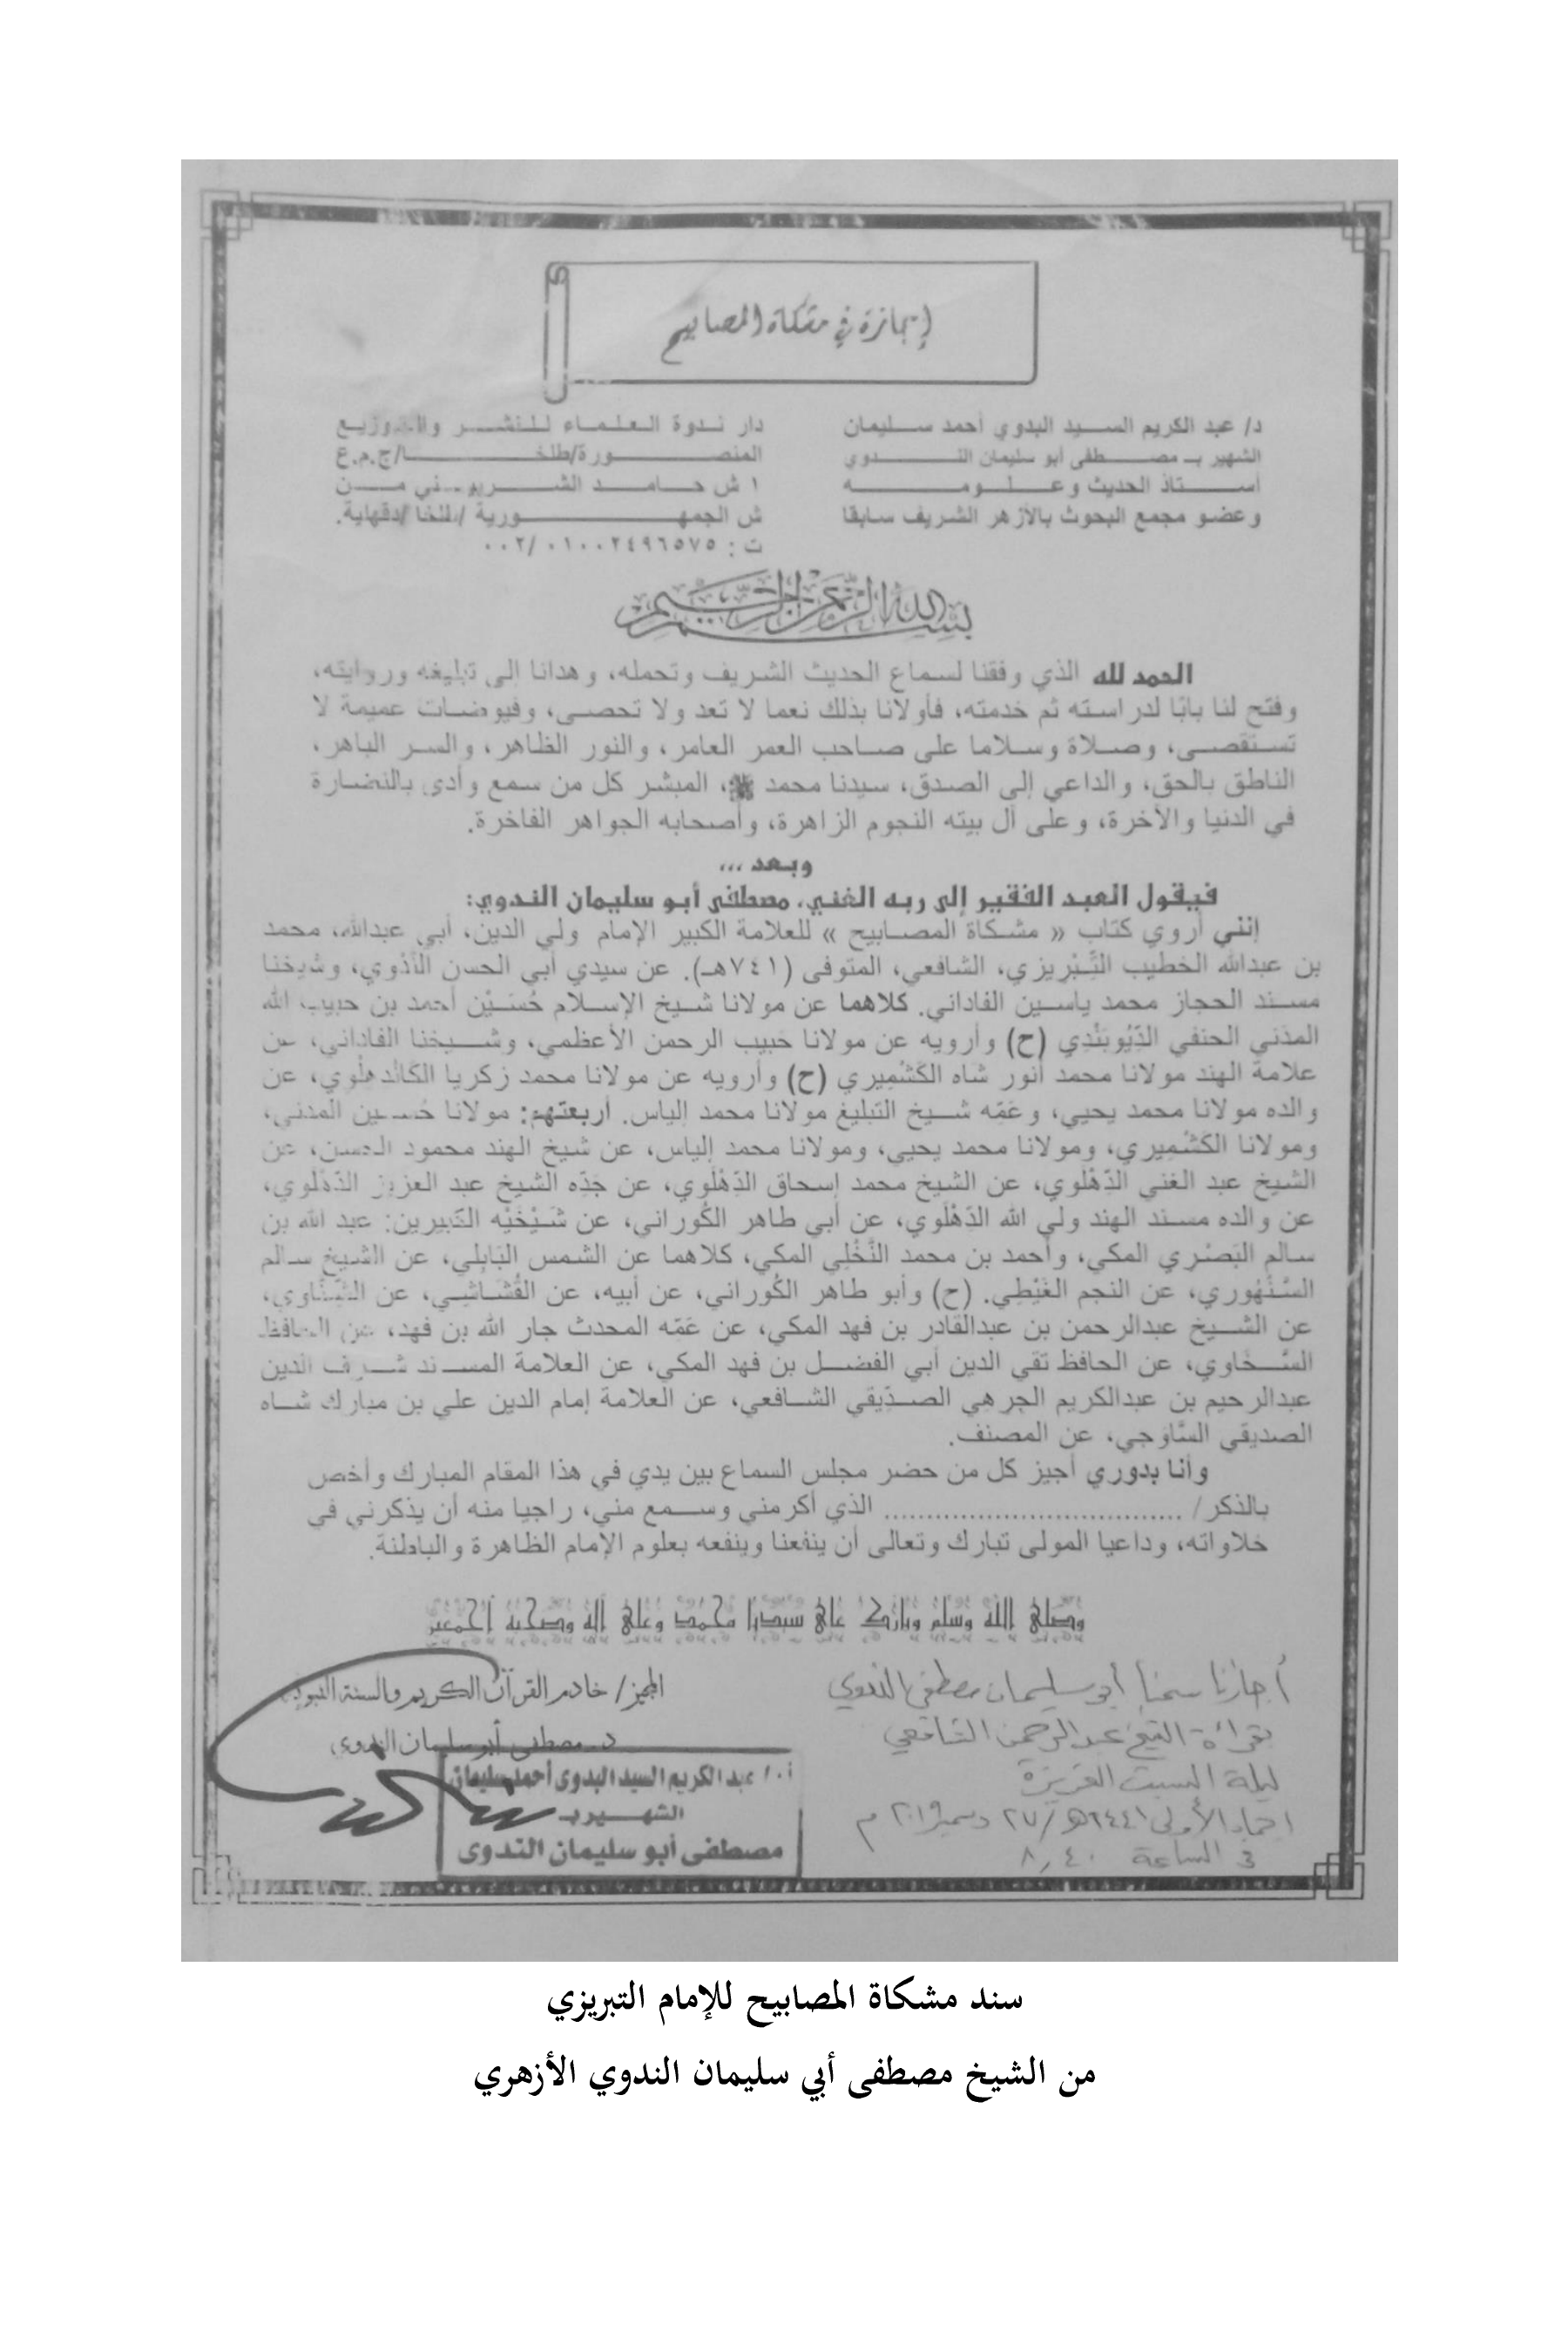 إجازة في مشكاة المصابيح
د/ عبد الكريم السيد البدوي أحمد سليمان
الشهير بـ مصطفى أبو سليمان الندوي
أستاذ الحديث وعلومه
وعضو مجمع البحوث بالأزهر الشريف سابقا
دار ندوة العلماء للنشر والتوزيع
المنصورة/طلخا/ج.م.ع
١ ش حامد الشربيني من
ش الجمهورية /طلخا/دقهلية.
ت : ٠٠٢/٠١٠٠٢٤٩٦٥٧٥
بسم الله الرحمن الرحيم
الحمد لله الذي وفقنا لسماع الحديث الشريف وتحمله، وهدانا إلى تبليغه وروايته،
وفتح لنا بابًا لدراسته ثم خدمته، فأولانا بذلك نعما لا تعد ولا تحصى، وفيوضات عميمة لا
تستقصى، وصلاة وسلاما على صاحب العمر العامر، والنور الظاهر، والسر الباهر،
الناطق بالحق، والداعي إلى الصدق، سيدنا محمد ﷺ، المبشر كل من سمع وأدى بالنضارة
في الدنيا والآخرة، وعلى آل بيته النجوم الزاهرة، وأصحابه الجواهر الفاخرة.
وبعد ...
فيقول العبد الفقير إلى ربه الغني، مصطفى أبو سليمان الندوي:
إنني أروي كتاب « مشكاة المصابيح » للعلامة الكبير الإمام ولي الدين، أبي عبدالله، محمد
بن عبدالله الخطيب التِّبْرِيزي، الشافعي، المتوفى (٧٤١هـ). عن سيدي أبي الحسن النَّدْوي، وشيخنا
مسند الحجاز محمد ياسين الفاداني. كلاهما عن مولانا شيخ الإسلام حُسَيْن أحمد بن حبيب الله
المدني الحنفي الدِّيُوبَنْدِي (ح) وأرويه عن مولانا حبيب الرحمن الأعظمي، وشيخنا الفاداني، عن
علامة الهند مولانا محمد أنور شاه الكَشْمِيري (ح) وأرويه عن مولانا محمد زكريا الكَانْدهْلوي، عن
والده مولانا محمد يحيى، وعَمّه شيخ التبليغ مولانا محمد إلياس. أربعتهم: مولانا حُسين المدني،
ومولانا الكَشْمِيري، ومولانا محمد يحيى، ومولانا محمد إلياس، عن شيخ الهند محمود الحسن، عن
الشيخ عبد الغني الدِّهْلوي، عن الشيخ محمد إسحاق الدِّهْلَوي، عن جَدّه الشيخ عبد العزيز الدِّهْلوي،
عن والده مسند الهند ولي الله الدِّهْلَوي، عن أبي طاهر الكُوراني، عن شَيْخَيْه الكبيرين: عبد الله بن
سالم البَصْري المكي، وأحمد بن محمد النَّخْلِي المكي، كلاهما عن الشمس البَابِلي، عن الشيخ سالم
السَّنْهُوري، عن النجم الغَيْطِي. (ح) وأبو طاهر الكُوراني، عن أبيه، عن القُشَاشِي، عن الشِّنَّاوي،
عن الشيخ عبدالرحمن بن عبدالقادر بن فهد المكي، عن عَمّه المحدث جار الله بن فهد، عن الحافظ
السَّخَاوي، عن الحافظ تقي الدين أبي الفضل بن فهد المكي، عن العلامة المسند شرف الدين
عبدالرحيم بن عبدالكريم الجرهي الصدّيقي الشافعي، عن العلامة إمام الدين علي بن مبارك شاه
الصديقي السَّاوَجي، عن المصنف.
وأنا بدوري أجيز كل من حضر مجلس السماع بين يدي في هذا المقام المبارك وأخص
بالذكر/ ................................... الذي أكرمني وسمع مني، راجيا منه أن يذكرني في
خلاواته، وداعيا المولى تبارك وتعالى أن ينفعنا وينفعه بعلوم الإمام الظاهرة والباطنة.
وصلى الله وسلم وبارك على سيدنا محمد وعلى آله وصحبه أجمعين
المجيز/ خادم القرآن الكريم والسنة النبوية
د. مصطفى أبو سليمان الندوي
أ.د/ عبد الكريم السيد البدوى أحمد سليمان
الشهير بـ
مصطفى أبو سليمان الندوى
أجازنا شيخنا أبو سليمان مصطفى الندوي
بقراءة الشيخ عبد الرحمن الشافعي
ليلة السبت
جماد الأولى ١٤٤١هـ/ ٢٧ ديسمبر ٢٠١٩ م
في الساعة ٨,٤٠
سند مشكاة المصابيح للإمام التبريزي
من الشيخ مصطفى أبي سليمان الندوي الأزهري